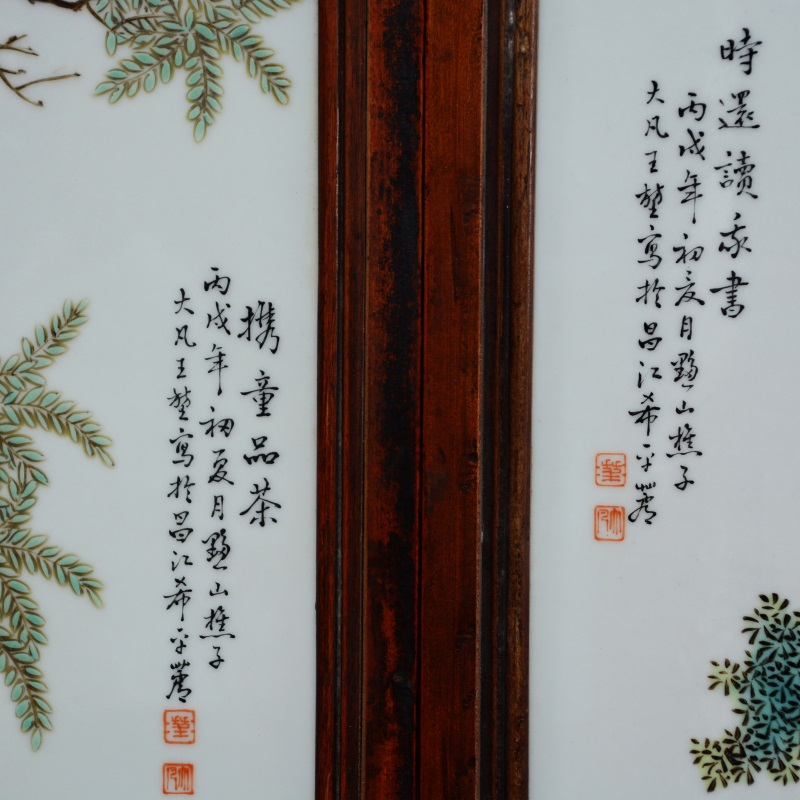 時還讀我書
丙戌年初夏月黟山樵子
大凡王堃寫於昌江希平薌
携童品茶
丙戌年初夏月黟山樵子
大凡王堃寫於昌江希平